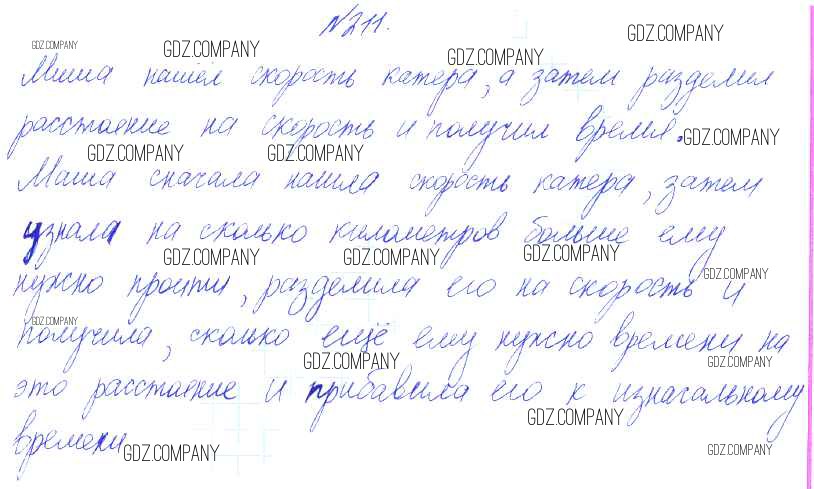 №211.
GDZ.COMPANY GDZ.COMPANY GDZ.COMPANY GDZ.COMPANY
Миша нашёл скорость катера, а затем разделил
расстояние на скорость и получил время. GDZ.COMPANY
GDZ.COMPANY GDZ.COMPANY
Маша сначала нашла скорость катера, затем
узнала на сколько километров больше ему
GDZ.COMPANY GDZ.COMPANY GDZ.COMPANY
нужно пройти, разделила его на скорость и
GDZ.COMPANY
GDZ.COMPANY
получила, сколько ещё ему нужно времени на
GDZ.COMPANY GDZ.COMPANY
это расстояние и прибавила его к изначальному
GDZ.COMPANY
времени
GDZ.COMPANY GDZ.COMPANY